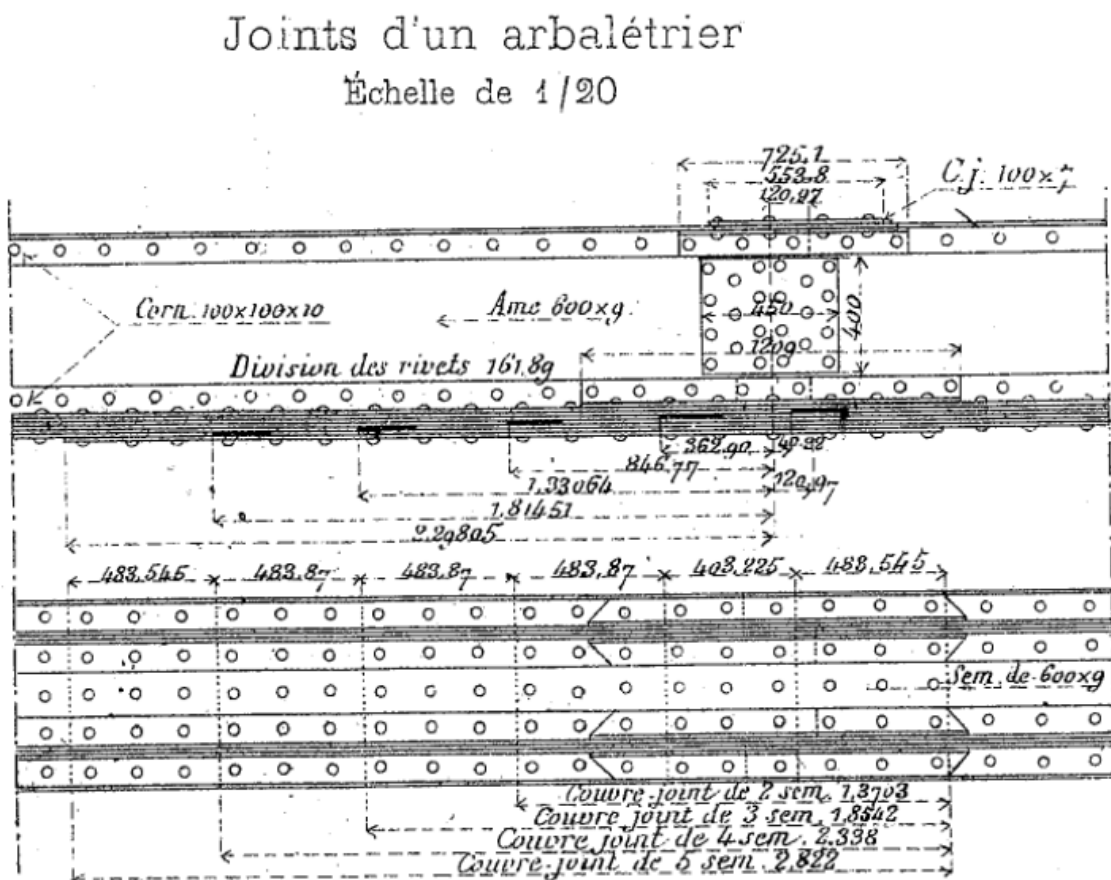 Joints d'un arbalétrier
Échelle de 1/20
725,1
553,8
120,97
C.j. 100×7
Corn. 100×100×10
Ame 600×9
450
400
1209
Division des rivets 161,89
362,90
40,32
846,77
120,97
1,33064
1,81451
2,29805
483,545
483,87
483,87
483,87
403,225
483,545
Sem. de 600×9
Couvre-joint de 2 sem. 1,3703
Couvre joint de 3 sem. 1,8542
Couvre joint de 4 sem. 2,338
Couvre-joint de 5 sem. 2,822